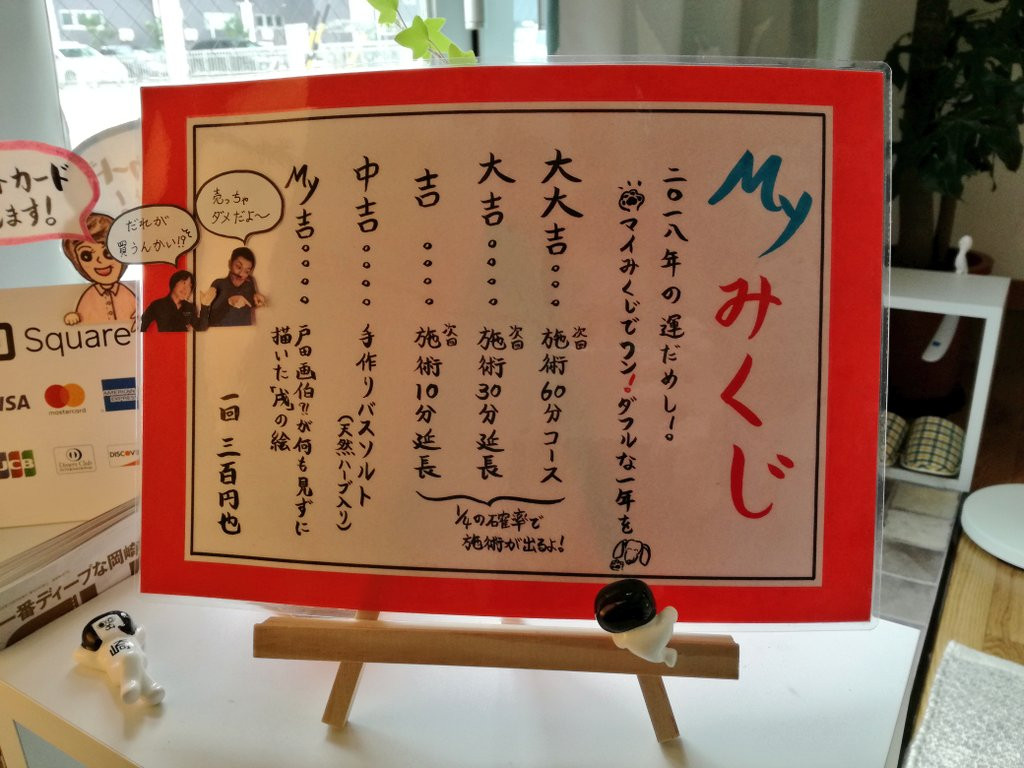 My みくじ
二〇一八年の運だめし!。
マイみくじでワン!ダフルな一年を
大大吉。。。。次回 施術60分コース
大吉。。。。次回 施術30分延長
吉。。。。次回 施術10分延長
1/4の確率で
施術が出るよ!
中吉。。。。手作りバスソルト
(天然ハーブ入り)
My吉。。。。戸田画伯⁈が何も見ずに
描いた「戌」の絵
一回 三百円也
売っちゃ
ダメだよ〜
だれが
買うんかい!?
トカード
ます!
Square
VISA
mastercard
AMERICAN EXPRESS
JCB
Diners Club
DISCOV
一番ディープな岡崎